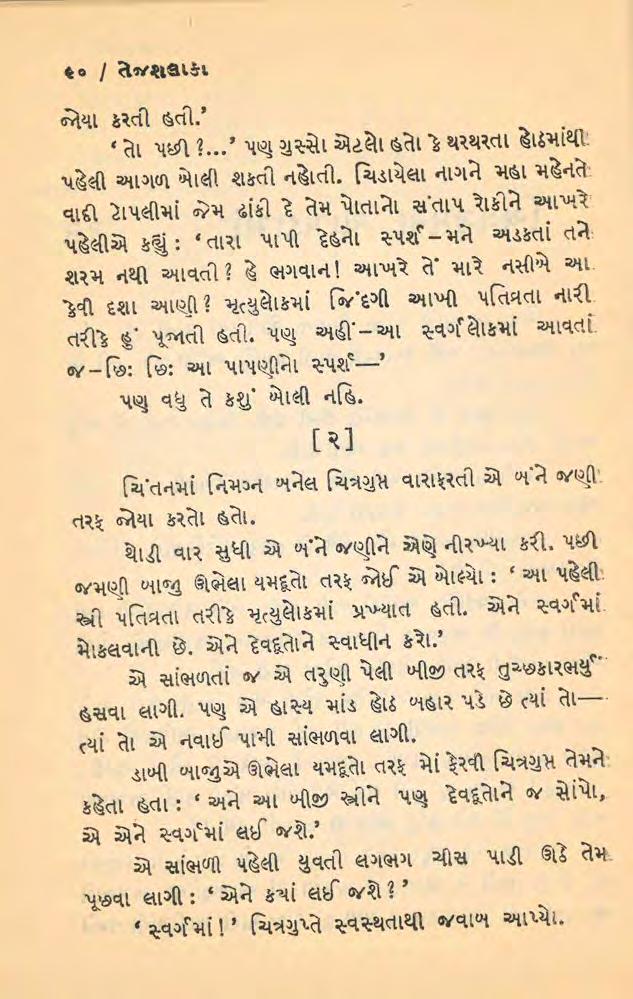 ૯૦ / તેજશલાકા
જોયા કરતી હતી.’
‘ તો પછી ?...’ પણ ગુસ્સો એટલો હતો કે થરથરતા હોઠમાંથી
પહેલી આગળ બોલી શકતી નહોતી. ચિડાયેલા નાગને મહા મહેનતે
વાદી ટોપલીમાં જેમ ઢાંકી દે તેમ પોતાનો સંતાપ રોકીને આખરે
પહેલીએ કહ્યું : ‘તારા પાપી દેહનો સ્પર્શ – મને અડકતાં તને
શરમ નથી આવતી ? હે ભગવાન ! આખરે તેં મારે નસીબે આ
કેવી દશા આણી ? મૃત્યુલોકમાં જિંદગી આખી પતિવ્રતા નારી
તરીકે હું પૂજાતી હતી. પણ અહીં – આ સ્વર્ગલોકમાં આવતાં
જ – છિઃ છિઃ આ પાપણીનો સ્પર્શ—’
પણ વધુ તે કશું બોલી નહિ.
[ ૨ ]
ચિંતનમાં નિમગ્ન બનેલ ચિત્રગુપ્ત વારાફરતી એ બંને જણી
તરફ જોયા કરતો હતો.
થોડી વાર સુધી એ બંને જણીને એણે નીરખ્યા કરી. પછી
જમણી બાજુ ઊભેલા યમદૂતો તરફ જોઈ એ બોલ્યો : ‘ આ પહેલી
સ્ત્રી પતિવ્રતા તરીકે મૃત્યુલોકમાં પ્રખ્યાત હતી. એને સ્વર્ગમાં
મોકલવાની છે. એને દેવદૂતોને સ્વાધીન કરો.’
એ સાંભળતાં જ એ તરુણી પેલી બીજી તરફ તુચ્છકારભર્યું
હસવા લાગી. પણ એ હાસ્ય માંડ હોઠ બહાર પડે છે ત્યાં તો—
ત્યાં તો એ નવાઈ પામી સાંભળવા લાગી.
ડાબી બાજુએ ઊભેલા યમદૂતો તરફ મોં ફેરવી ચિત્રગુપ્ત તેમને
કહેતા હતા : ‘ અને આ બીજી સ્ત્રીને પણ દેવદૂતોને જ સોંપો,
એ એને સ્વર્ગમાં લઈ જશે.’
એ સાંભળી પહેલી યુવતી લગભગ ચીસ પાડી ઊઠે તેમ
પૂછવા લાગી : ‘ એને ક્યાં લઈ જશે ? ’
‘ સ્વર્ગમાં ! ’ ચિત્રગુપ્તે સ્વસ્થતાથી જવાબ આપ્યો.